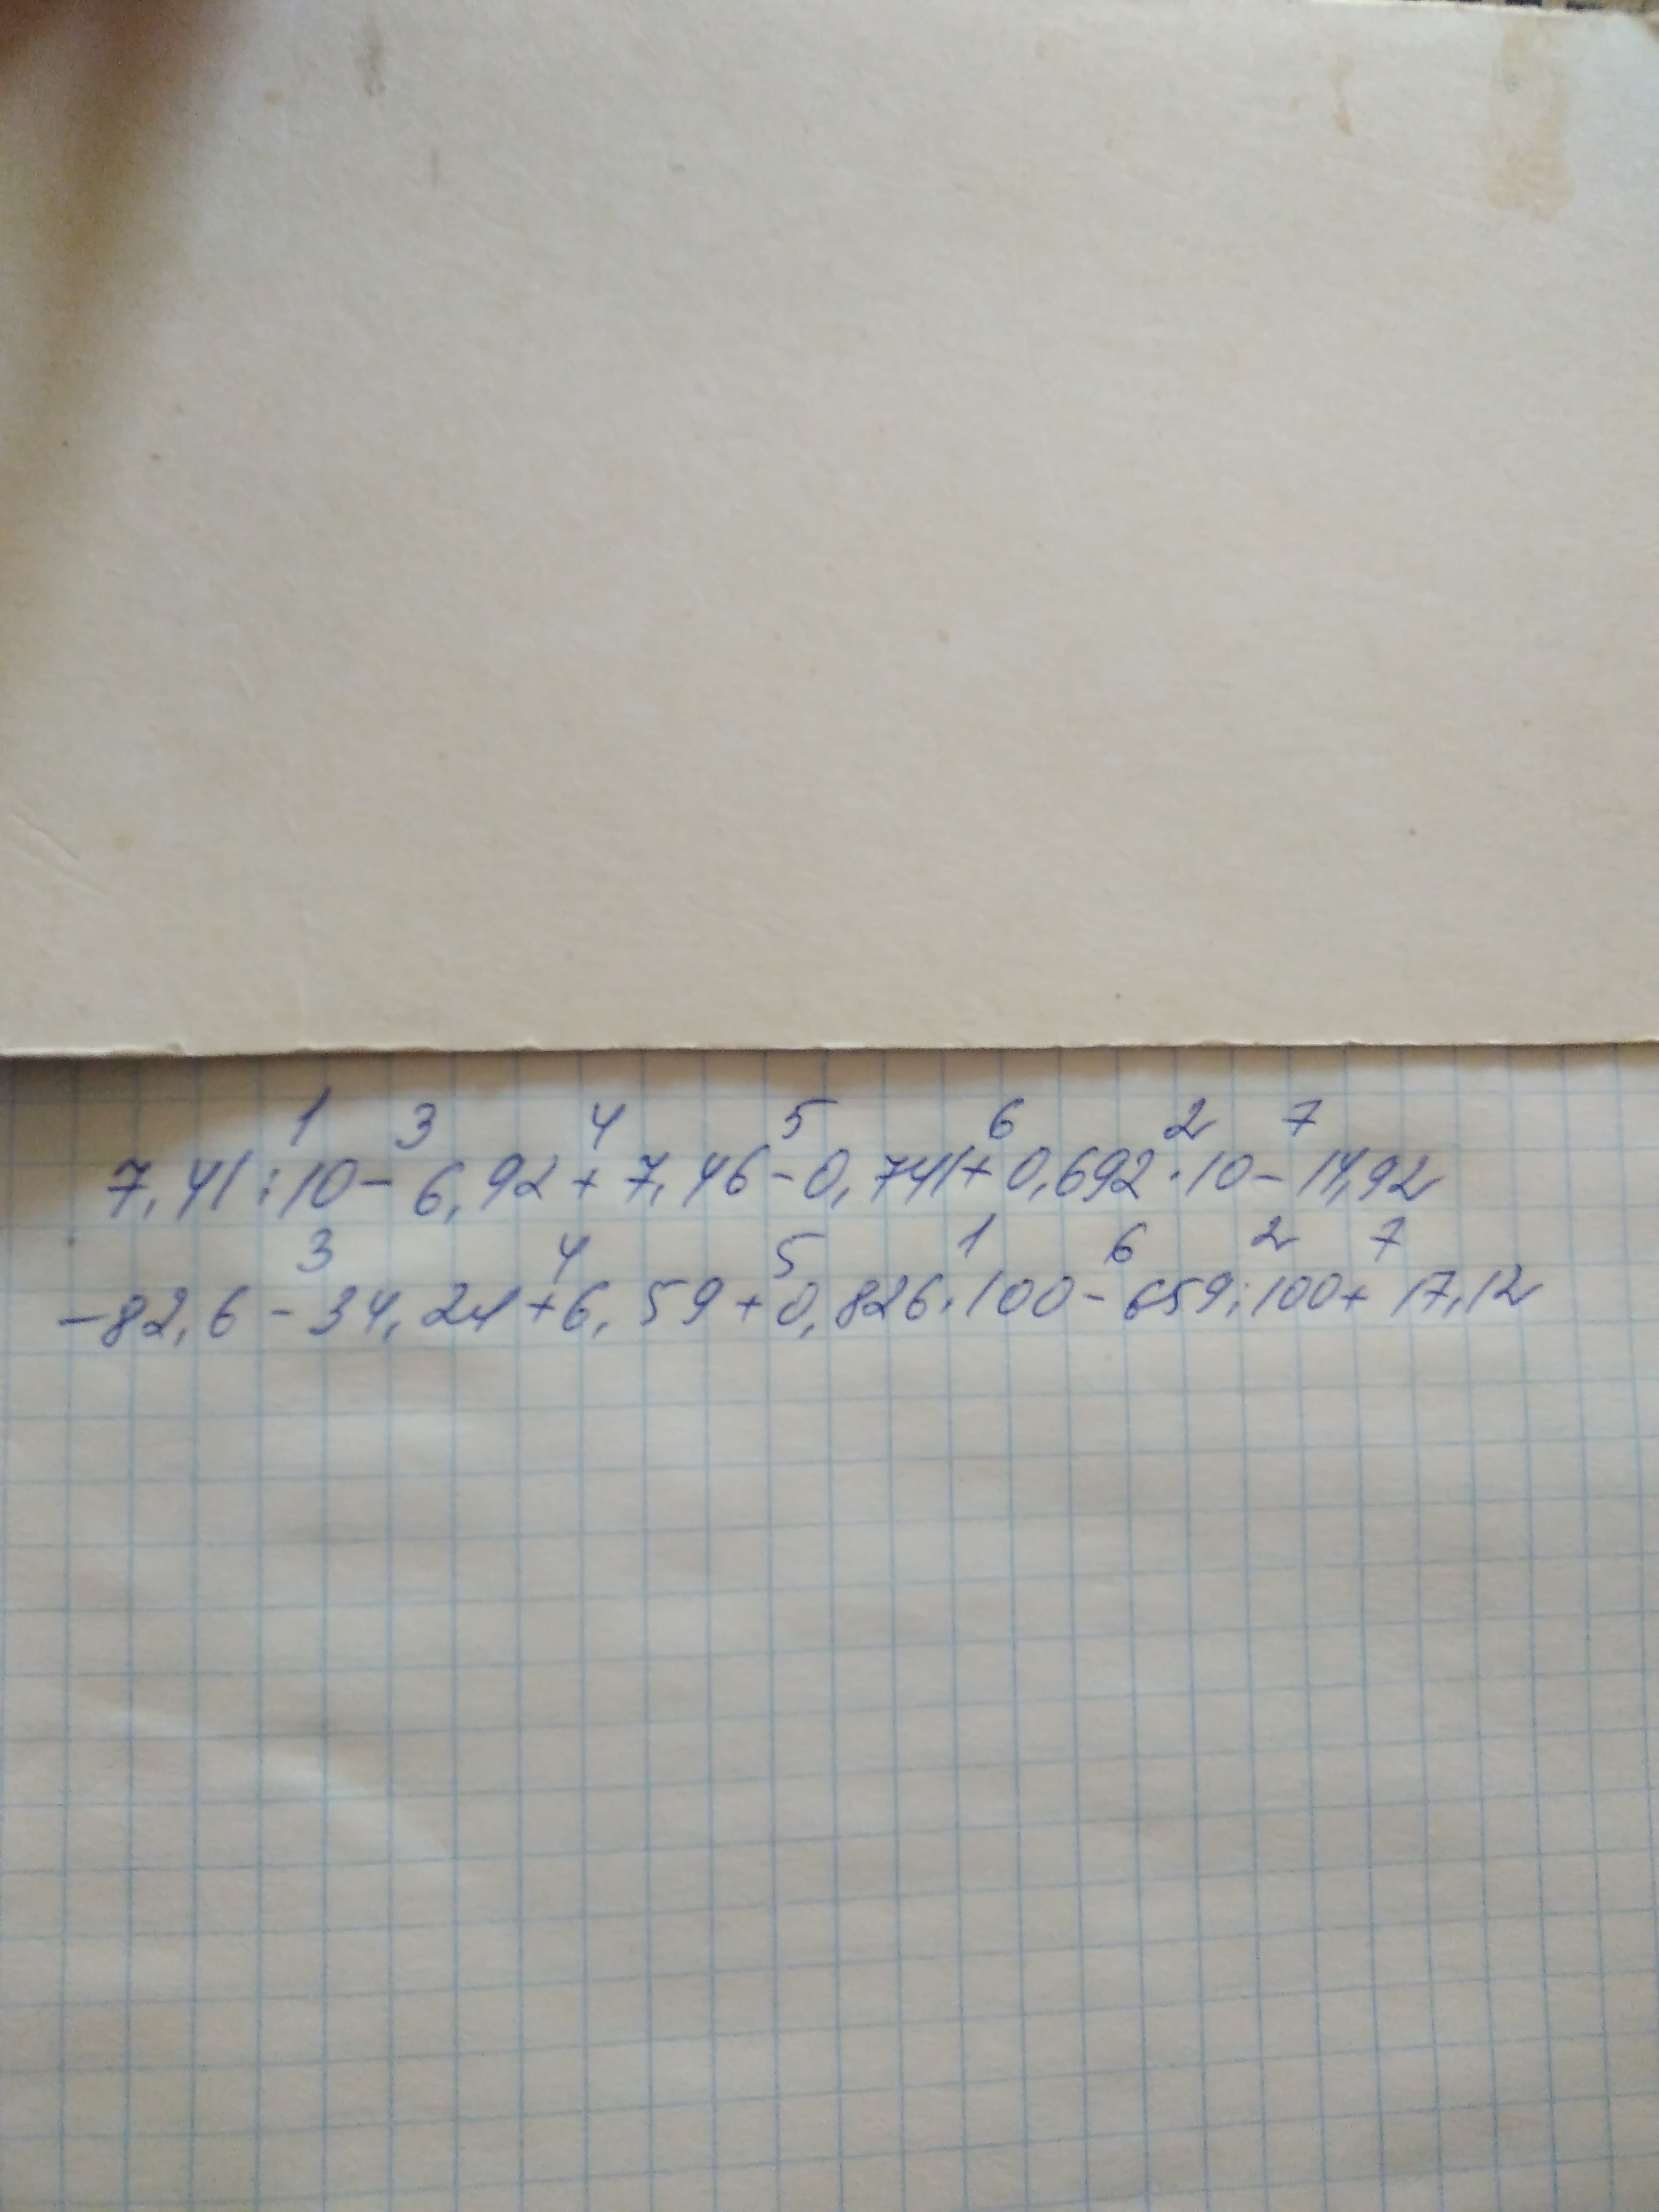 1 3 4 5 6 2 7
7,41:10-6,92+7,46-0,741+0,692·10-14,92
3 4 5 1 6 2 7
-82,6-34,24+6,59+0,826·100-659:100+17,12